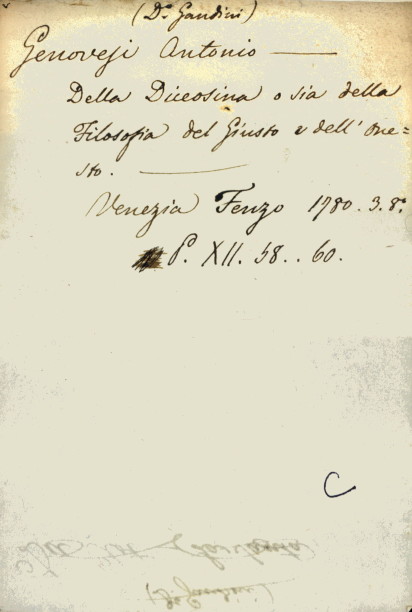 (Dr. Gandini)
Genovesi Antonio ——
Della Diceosina o sia della
Filosofia del Giusto e dell' One=
sto. ——
Venezia Fenzo 1780. 3. 8º.
P. XII. 58.. 60.
C